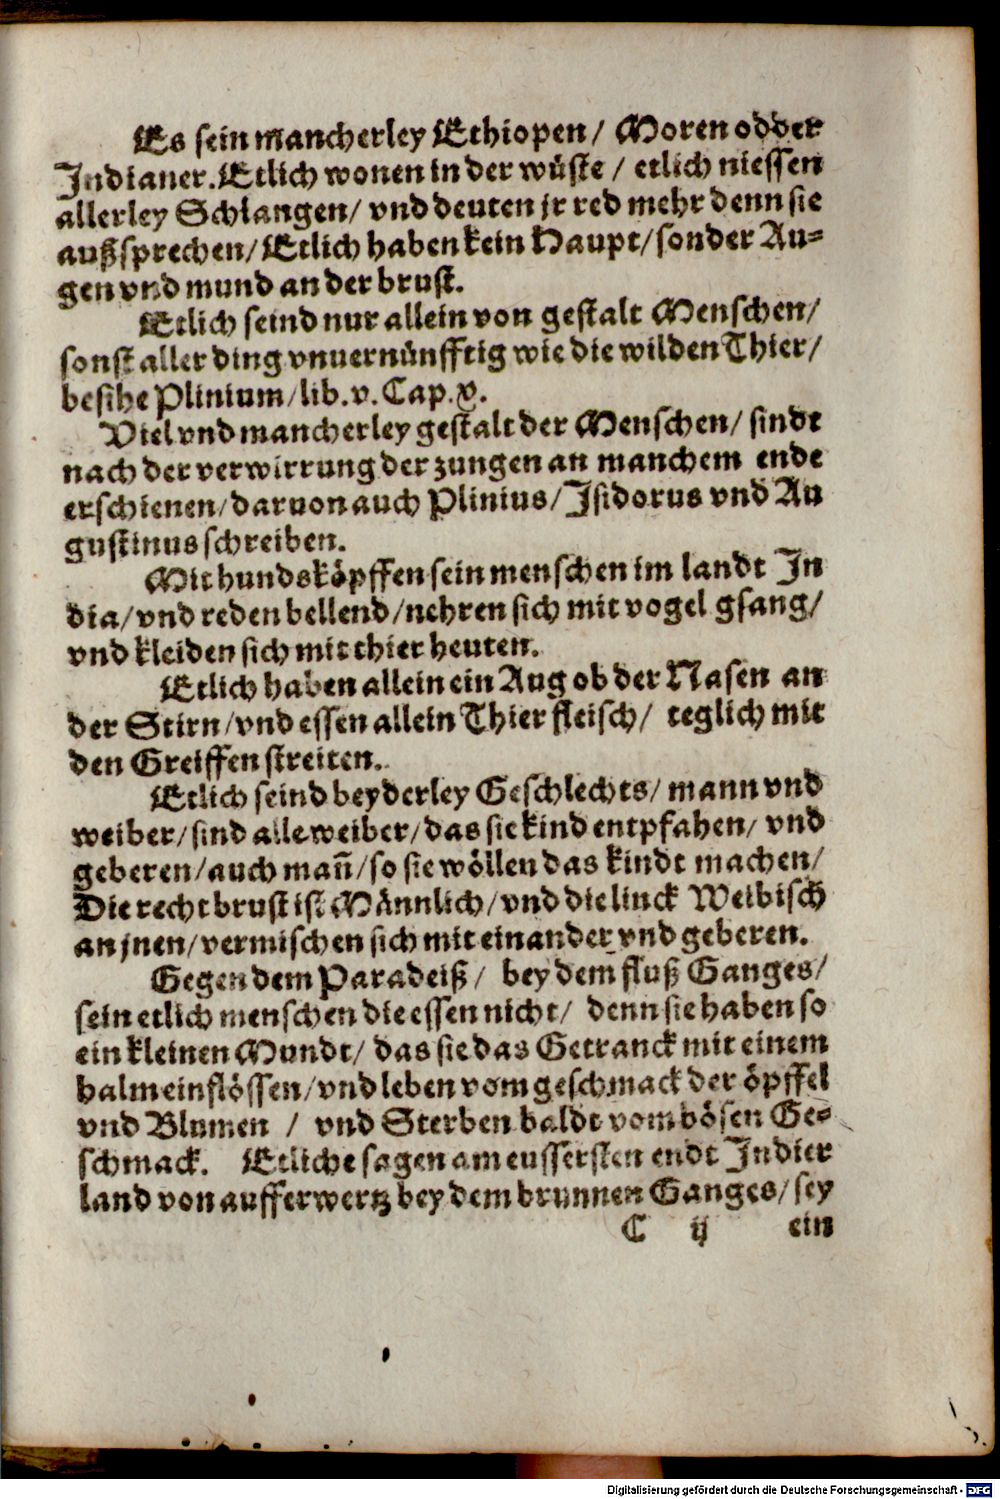 Es sein mancherley Ethiopen/ Moren odder
Indianer. Etlich wonen in der wüste / etlich niessen
allerley Schlangen/ vnd deuten jr red mehr denn sie
außsprechen/ Etlich haben kein Haupt/ sonder Au⸗
gen vnd mund an der brust.
Etlich seind nur allein von gestalt Menschen/
sonst aller ding vnuernünfftig wie die wilden Thier/
besihe Plinium/ lib. v. Cap. v.
Viel vnd mancherley gestalt der Menschen/ sindt
nach der verwirrung der zungen an manchem ende
erschienen/ daruon auch Plinius/ Isidorus vnd Au
gustinus schreiben.
Mit hundsköpffen sein menschen im landt In
dia/ vnd reden bellend/ nehren sich mit vogel gsang/
vnd kleiden sich mit thier heuten.
Etlich haben allein ein Aug ob der Nasen an
der Stirn/ vnd essen allein Thier fleisch/ teglich mit
den Greiffen streiten.
Etlich seind beyderley Geschlechts/ mann vnd
weiber/ sind alle weiber/ das sie kind entpfahen/ vnd
geberen/ auch man̄/ so sie wöllen das kindt machen/
Die recht brust ist Männlich/ vnd die linck Weibisch
an jnen/ vermischen sich mit einander vnd geberen.
Gegen dem Paradeiß/ bey dem fluß Ganges/
sein etlich menschen die essen nicht/ denn sie haben so
ein kleinen Mundt/ das sie das Getranck mit einem
halm einflössen/ vnd leben vom geschmack der öpffel
vnd Blumen / vnd Sterben baldt vom bösen Ge⸗
schmack. Etliche sagen am eussersten endt Indier
land von aufferwertz bey dem brunnen Ganges/ sey
C ij ein
Digitalisierung gefördert durch die Deutsche Forschungsgemeinschaft - DFG